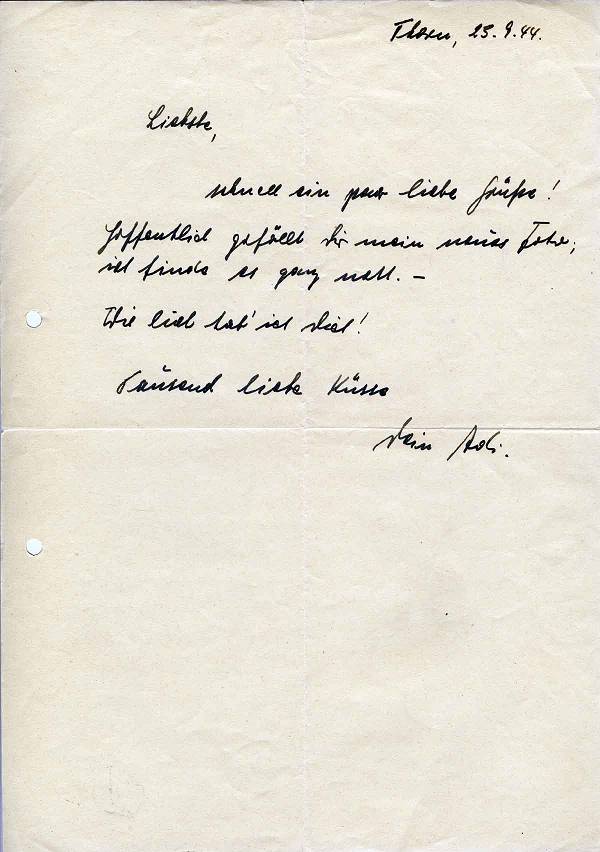 Thorn, 23.9.44.
Liebste,
schnell ein paar liebe Grüße!
Hoffentlich gefällt Dir mein neues Foto;
ich finde es ganz nett. –
Wie lieb hab' ich Dich!
Tausend liebe Küsse
Dein Adi.